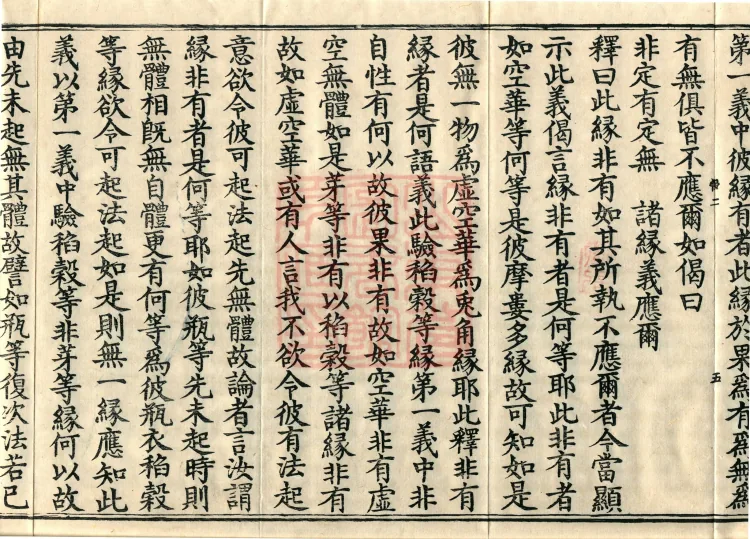 第一義中彼緣有者此緣於果爲有爲無爲
有無俱皆不應爾如偈曰
非定有定無　諸緣義應爾
釋曰此緣非有如其所執不應爾者今當顯
示此義偈言緣非有者是何等耶此非有者
如空華等何等是彼摩婁多緣故可知如是
彼無一物爲虛空華爲兎角緣耶此釋非有
緣者是何語義此驗稻穀等緣第一義中非
自性有何以故彼果非有故如空華非有虛
空無體如是芽等非有以稻穀等諸緣非有
故如虛空華或有人言我不欲令彼有法起
意欲令彼可起法起先無體故論者言汝謂
緣非有者是何等耶如彼瓶等先未起時則
無體相旣無自體更有何等爲彼瓶衣稻穀
等緣欲令可起法起如是則無一緣應知此
義以第一義中驗稻穀等非芽等緣何以故
由先未起無其體故譬如瓶等復次法若已
二
五